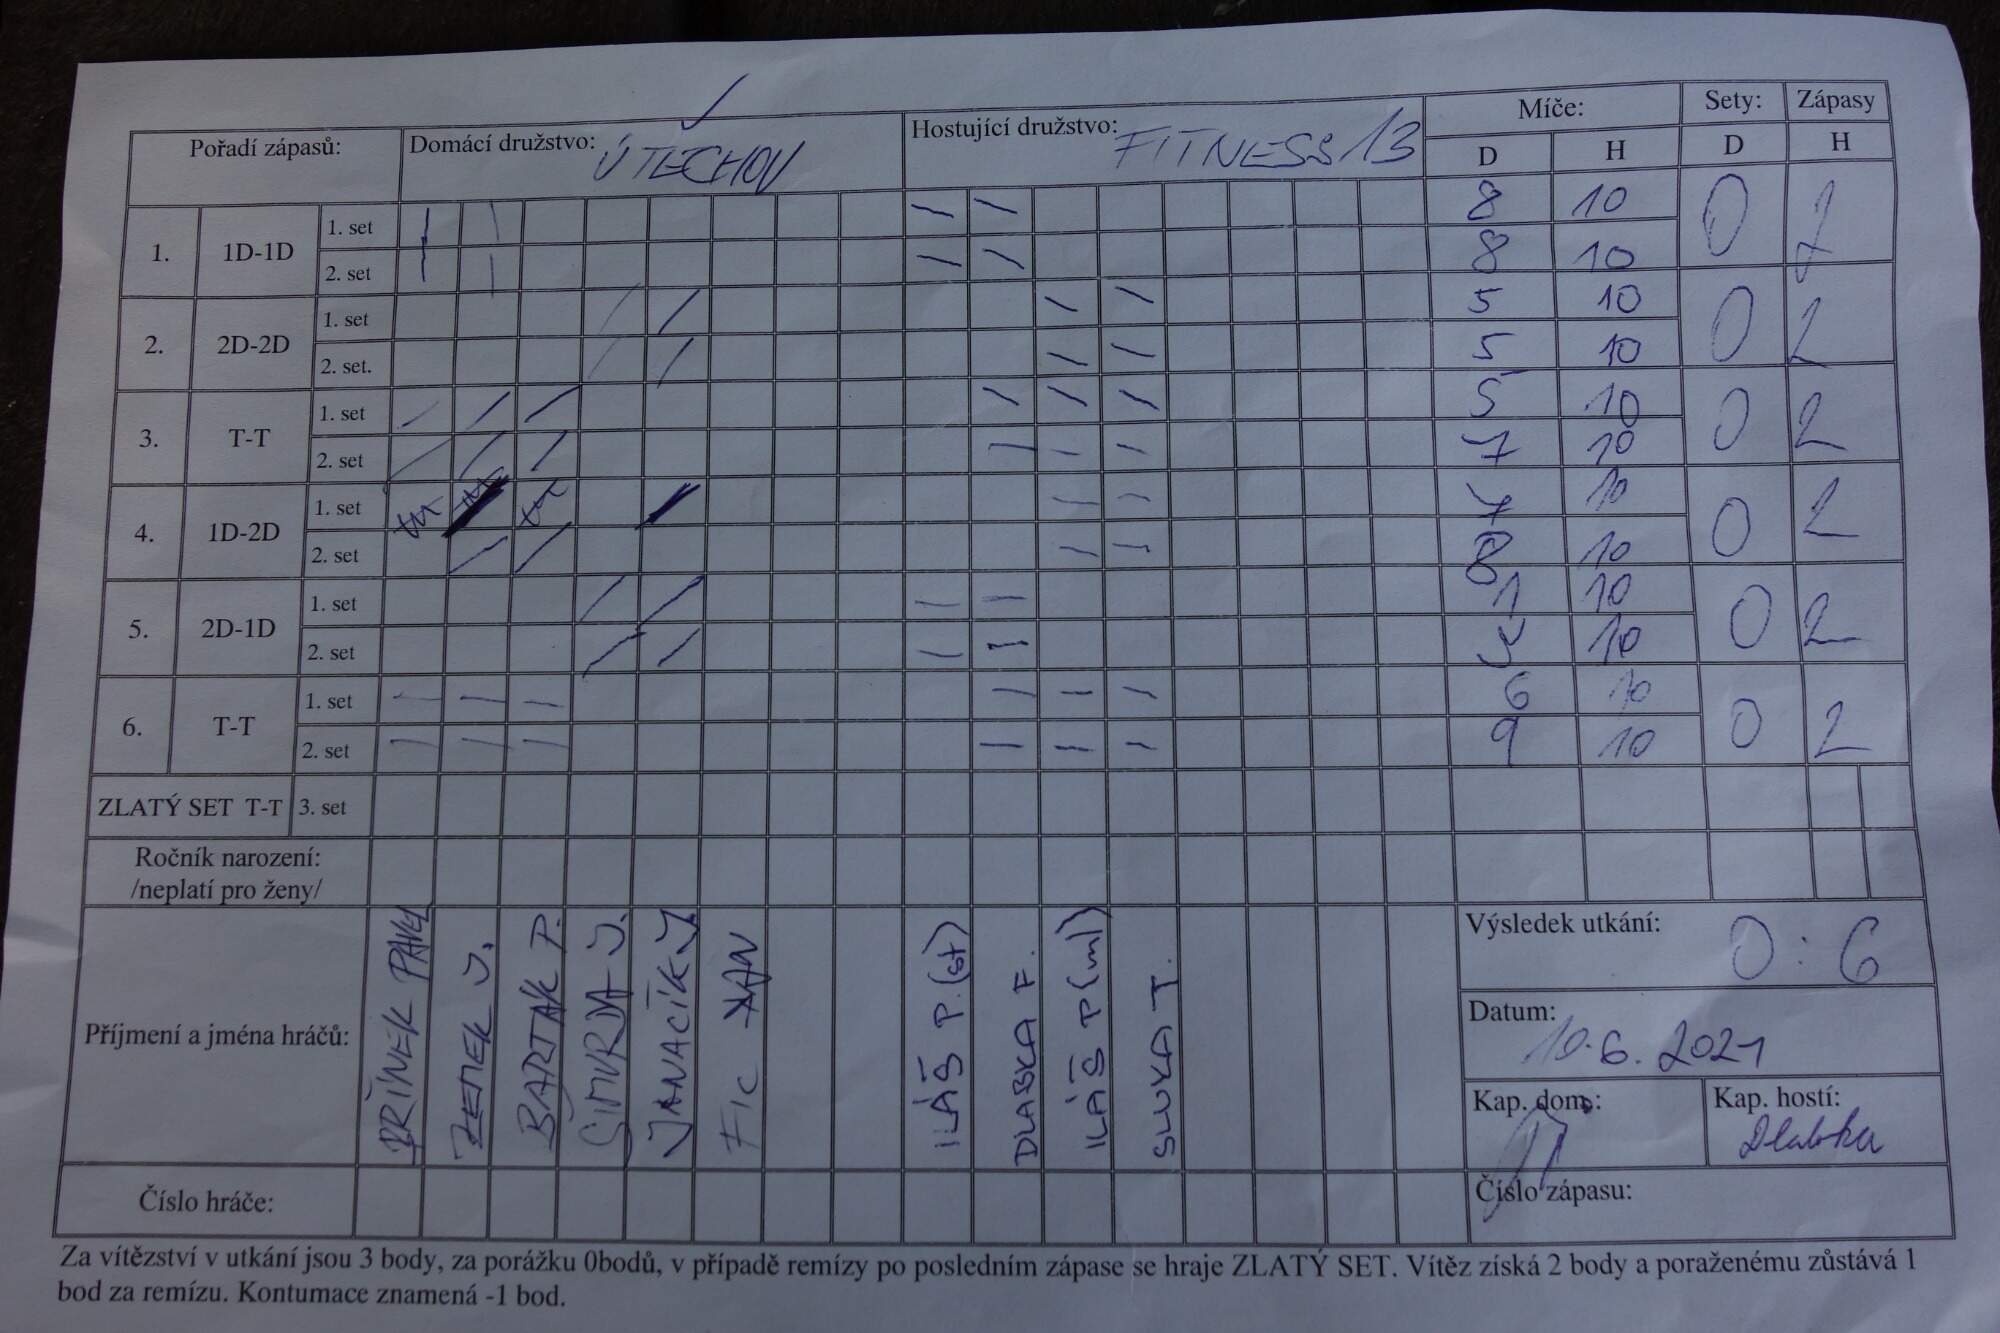 Pořadí zápasů: Domácí družstvo: ÚTECHOV Hostující družstvo: FITNESS 13 Míče: Sety: Zápasy
D H D H
1. 1D-1D 1. set 8 10 0 2
2. set 8 10
2. 2D-2D 1. set 5 10 0 2
2. set. 5 10
3. T-T 1. set 5 10 0 2
2. set 7 10
4. 1D-2D 1. set 7 10 0 2
2. set 8 10
5. 2D-1D 1. set 1 10 0 2
2. set 10
6. T-T 1. set 6 10 0 2
2. set 9 10
ZLATÝ SET T-T 3. set
Ročník narození:
/neplatí pro ženy/
Příjmení a jména hráčů:
PŘÍNEK PAVEL
ZEMEK J.
BARTÁK P.
ŠIMURDA J.
JANAČÍK J
FIC JAN
ILÁŠ P. (st)
DLABKA F.
ILÁŠ P (ml)
SLUKA T.
Výsledek utkání: 0:6
Datum:
10.6.2021
Kap. dom.: Kap. hostí:
Dlabka
Číslo hráče: Číslo zápasu:
Za vítězství v utkání jsou 3 body, za porážku 0bodů, v případě remízy po posledním zápase se hraje ZLATÝ SET. Vítěz získá 2 body a poraženému zůstává 1
bod za remízu. Kontumace znamená -1 bod.